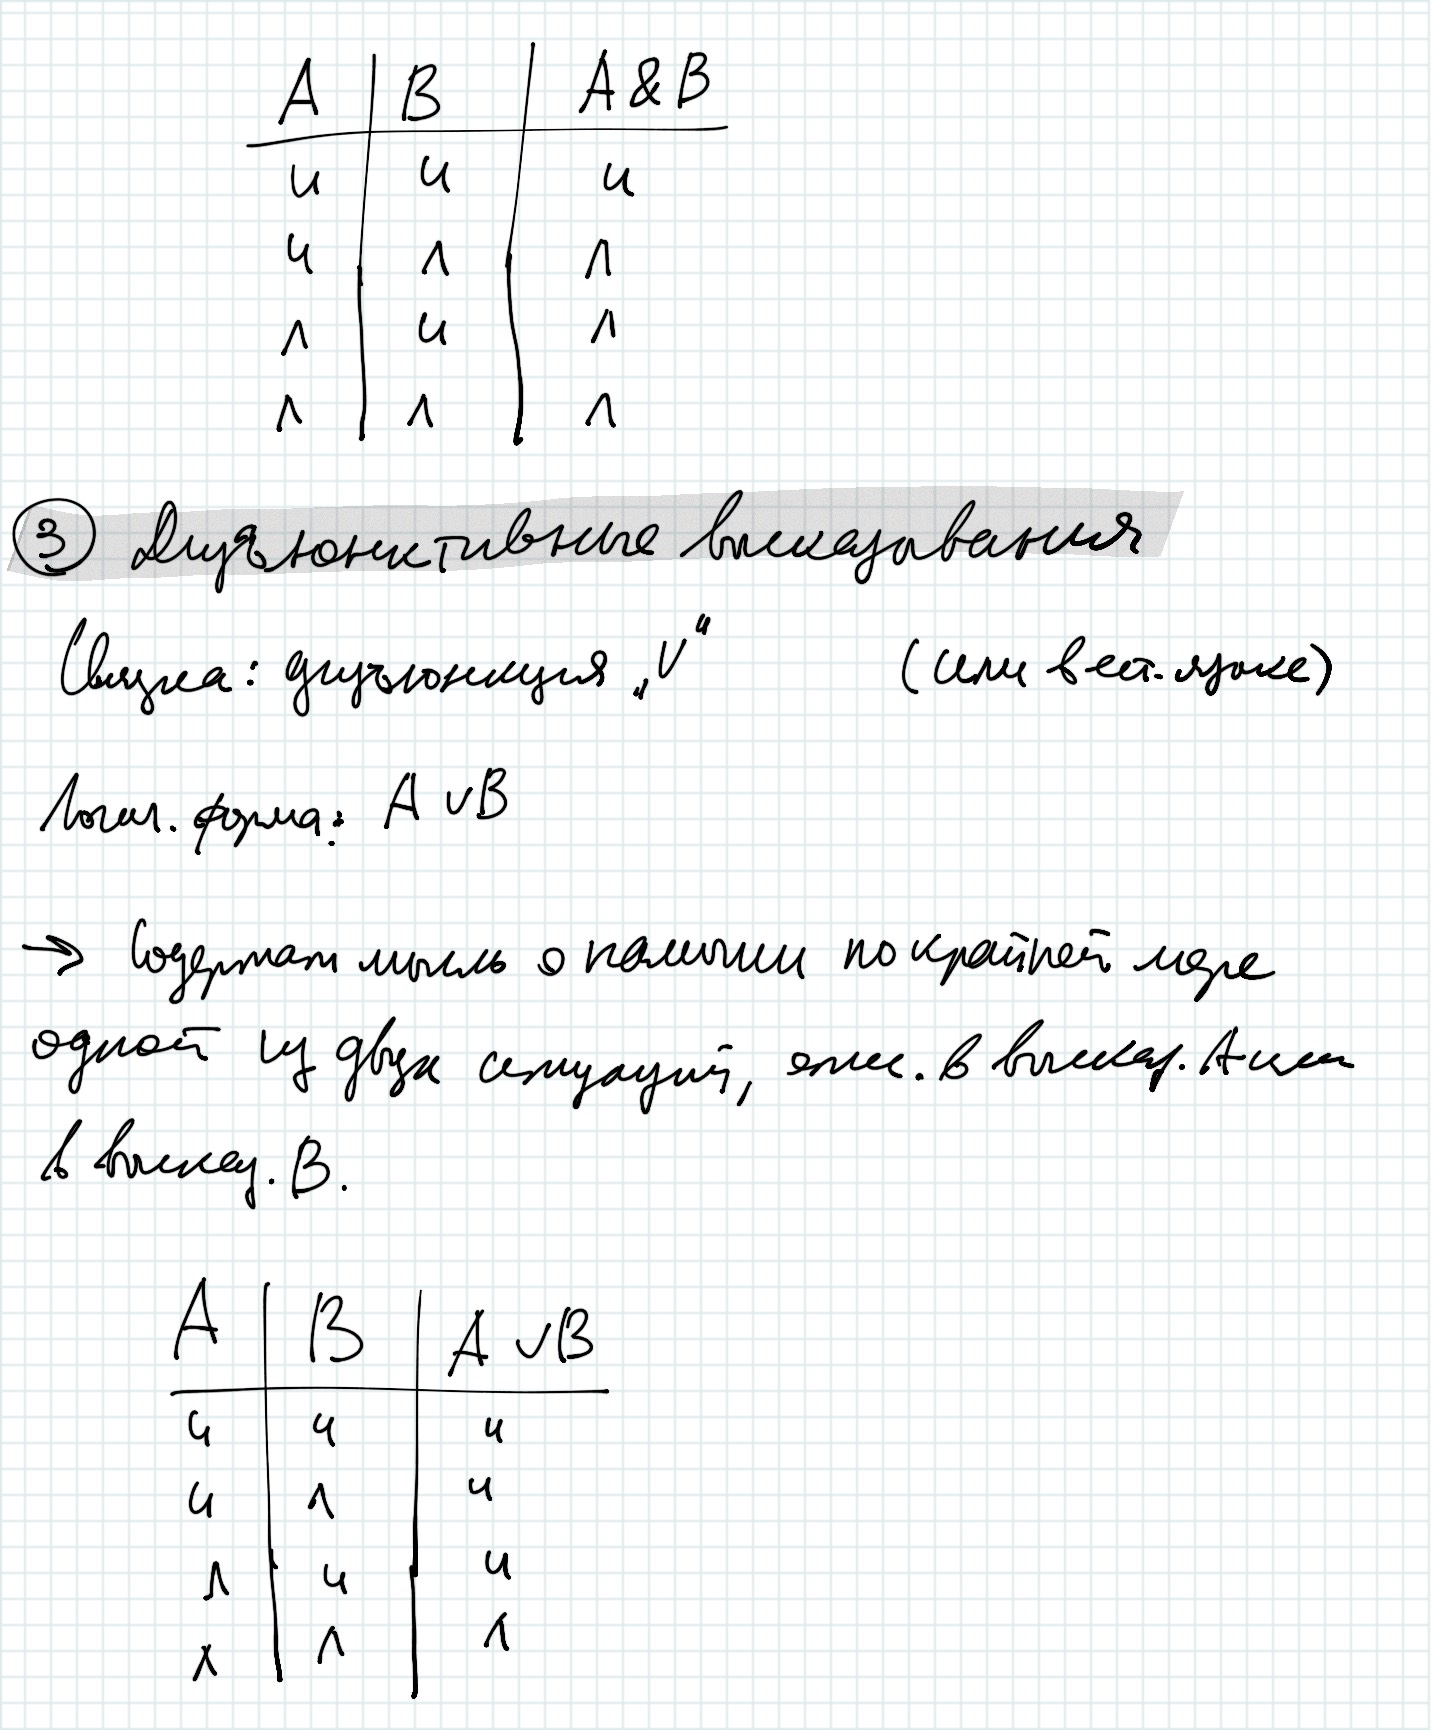 A B A & B
и и и
и л л
л и л
л л л
3 Дизъюнктивные высказывания
Связка: дизъюнкция „V“ (или в ест. языке)
Логич. форма: A ∨ B
→ Содержат мысль о наличии по крайней мере
одной из двух ситуаций, опис. в высказ. A или
в высказ. B.
A B A ∨ B
и и и
и л и
л и и
л л л